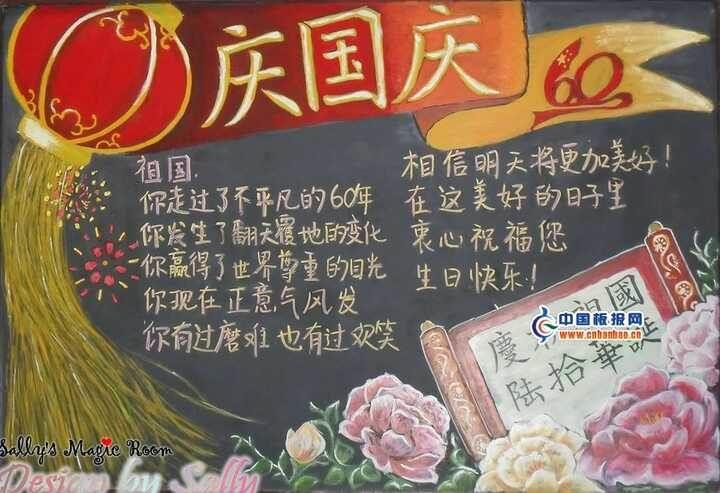 庆国庆
60
祖国,
你走过了不平凡的60年
你发生了翻天覆地的变化
你赢得了世界尊重的目光
你现在正意气风发
你有过磨难也有过欢笑
相信明天将更加美好！
在这美好的日子里
衷心祝福您
生日快乐！
慶 祖國
陆拾華誕
中国板报网
www.cnbanbao.cn
Sally's Magic Room
Design by Sally